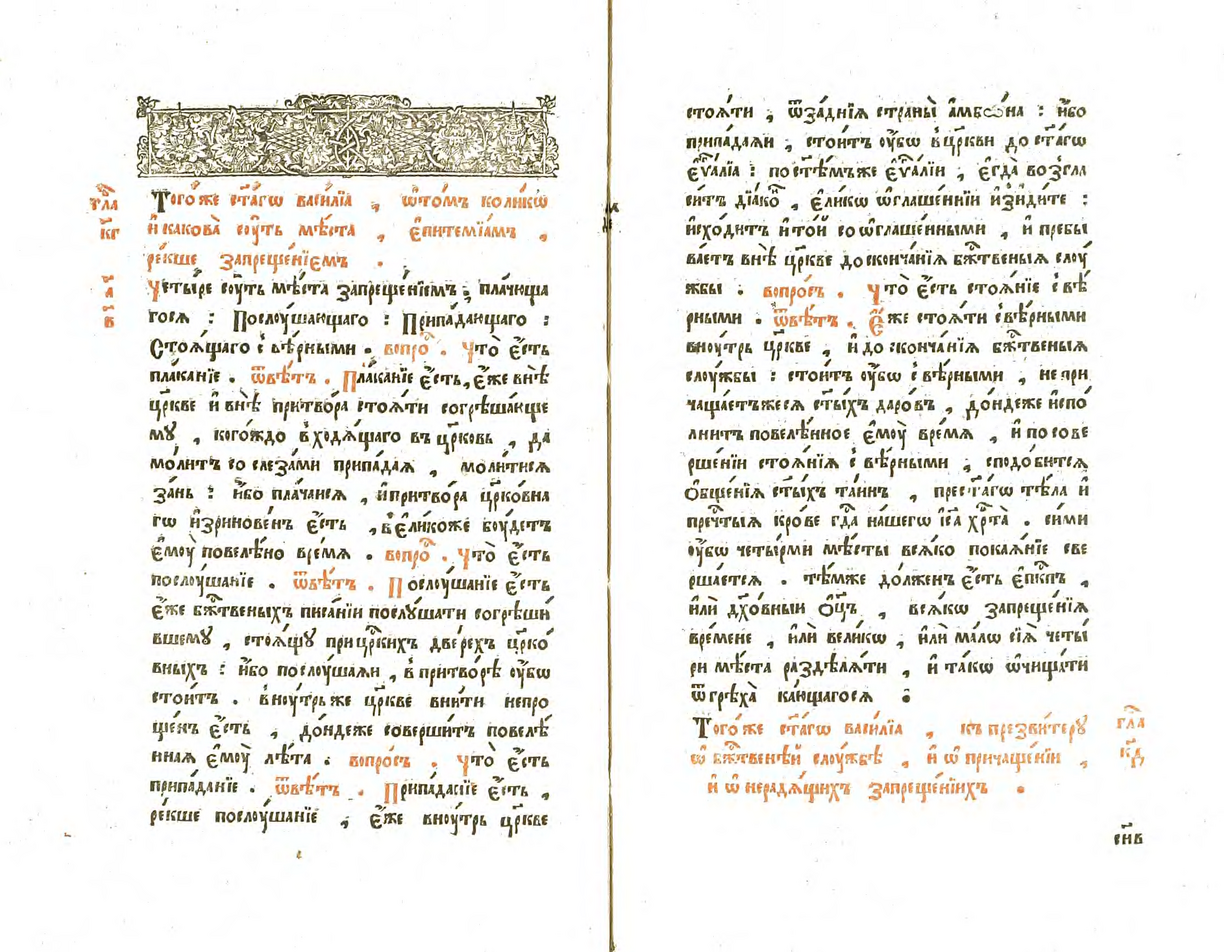 гл҃а
к҃г
Тогоже ст҃а́гѡ васи́лїа , ѡ҆то́мъ коли́кѡ
и҆ какова̀ сꙋ́ть мѣ́ста , є҆питемі́амъ ,
ре́кше запреще́нїемъ .
Четы́ре сꙋ́ть мѣ́ста запреще́нїемъ ; пла́чюща
а҃
в҃
гося : Послꙋ́шающаго : Припа́дающаго :
Стоѧ́щаго с̾ вѣ́рными . вопро́ . Что̀ є҆́сть
пла́канїе . ѿвѣ́тъ . Пла́канїе є҆́сть, є҆́же внѣ̀
цр҃кве и҆ внѣ̀ притво́ра стоѧ́ти согрѣша́юще
мꙋ , кого́ждо в̾ходѧ́щаго въ цр҃ковь , да
мо́литъ со слеза́ми припа́даѧ , моли́тисѧ
зань : и҆́бо пла́чаисѧ , и҆притво́ра цр҃ко́вна
гѡ и҆зринове́нъ є҆́сть , в̾ели́коже бꙋ́детъ
є҆мꙋ̀ повелѣ́но вре́мѧ . вопро́ . Что̀ є҆́сть
послꙋ́шанїе . ѿвѣ́тъ . Послꙋ́шанїе є҆́сть
є҆́же бж҃твеныхъ писа́нїи послꙋ́шати согрѣши́
вшемꙋ , стоѧ́щꙋ при цр҃кихъ две́рехъ цр҃ко́
вныхъ : и҆́бо послꙋ́шаѧи , в̾ притво́рѣ ꙋ҆́бѡ
стои́тъ . в̾нꙋ́трьже цр҃кве вни́ти непро
ще́нъ є҆́сть , до́ндеже соверши́тъ повелѣ́
нная є҆мꙋ̀ лѣ́та . вопро́съ . Что̀ є҆́сть
припа́данїе . ѿвѣ́тъ . Припа́данїе є҆́сть ,
ре́кше послꙋ́шанїе , є҆́же внꙋ́трь цр҃кве
стоѧ́ти , ѿза́днїѧ страны̀ а҆мбѡ́на : и҆́бо
припа́даѧи , стои́тъ ꙋ҆́бѡ в̾цр҃кви до ст҃а́гѡ
є҆ѵⷢ҇алїа : по стѣ́мъже є҆ѵⷢ҇алїи , є҆гда̀ возгла
си́тъ дїа́ко , є҆ли́кѡ ѡ҆глаше́ннїи и҆зыди́те :
и҆схо́дитъ и҆ то́й со ѡ҆глаше́нными , и҆ пребы
ва́етъ внѣ̀ цр҃кве до сконча́нїѧ бж҃твеныѧ слꙋ́
жбы . вопро́съ . Что̀ є҆́сть стоѧ́нїе с̾ вѣ́
рными . ѿвѣ́тъ . Є҆́же стоѧ́ти с̾вѣ́рными
внꙋ́трь цр҃кве , и҆ до сконча́нїѧ бж҃твеныѧ
слꙋ́жбы : стои́тъ ꙋ҆́бѡ с̾ вѣ́рными , не при
чаща́етъжесѧ ст҃ы́хъ даро́въ , до́ндеже и҆спо́
лнитъ повелѣ́нное є҆мꙋ̀ вре́мѧ , и҆ по сове
рше́нїи стоѧ́нїѧ с̾ вѣ́рными , сподо́битсѧ
О҆бще́нїѧ ст҃ы́хъ та́инъ , прест҃а́гѡ тѣ́ла и҆
преч҃тыѧ кро́ве гд҃а на́шегѡ і҆с҃а хр҃та̀ . си́ми
ꙋ҆́бѡ четы́рми мѣ́сты всѧ́ко покаѧ́нїе све
рша́етсѧ . тѣ́мже до́лженъ є҆́сть є҆п҃кпъ ,
и҆лѝ дх҃о́вныи О҆ц҃ъ , всѧ́кѡ запреще́нїѧ
вре́мене , и҆лѝ вели́кѡ , и҆лѝ ма́лѡ сїѧ̀ четы́
ри мѣ́ста раздѣлѧ́ти , и҆ та́кѡ ѡ҆чища́ти
ѿ грѣха̀ ка́ющагосѧ .
Тогоже ст҃а́гѡ васи́лїа , къ презви́терꙋ
ѡ҆ бж҃твенѣ́й слꙋ́жбѣ , и҆ ѡ҆ причаще́нїи ,
и҆ ѡ҆ нерадѧ́щихъ запреще́нїихъ .
гл҃а
к҃д
сн҃в